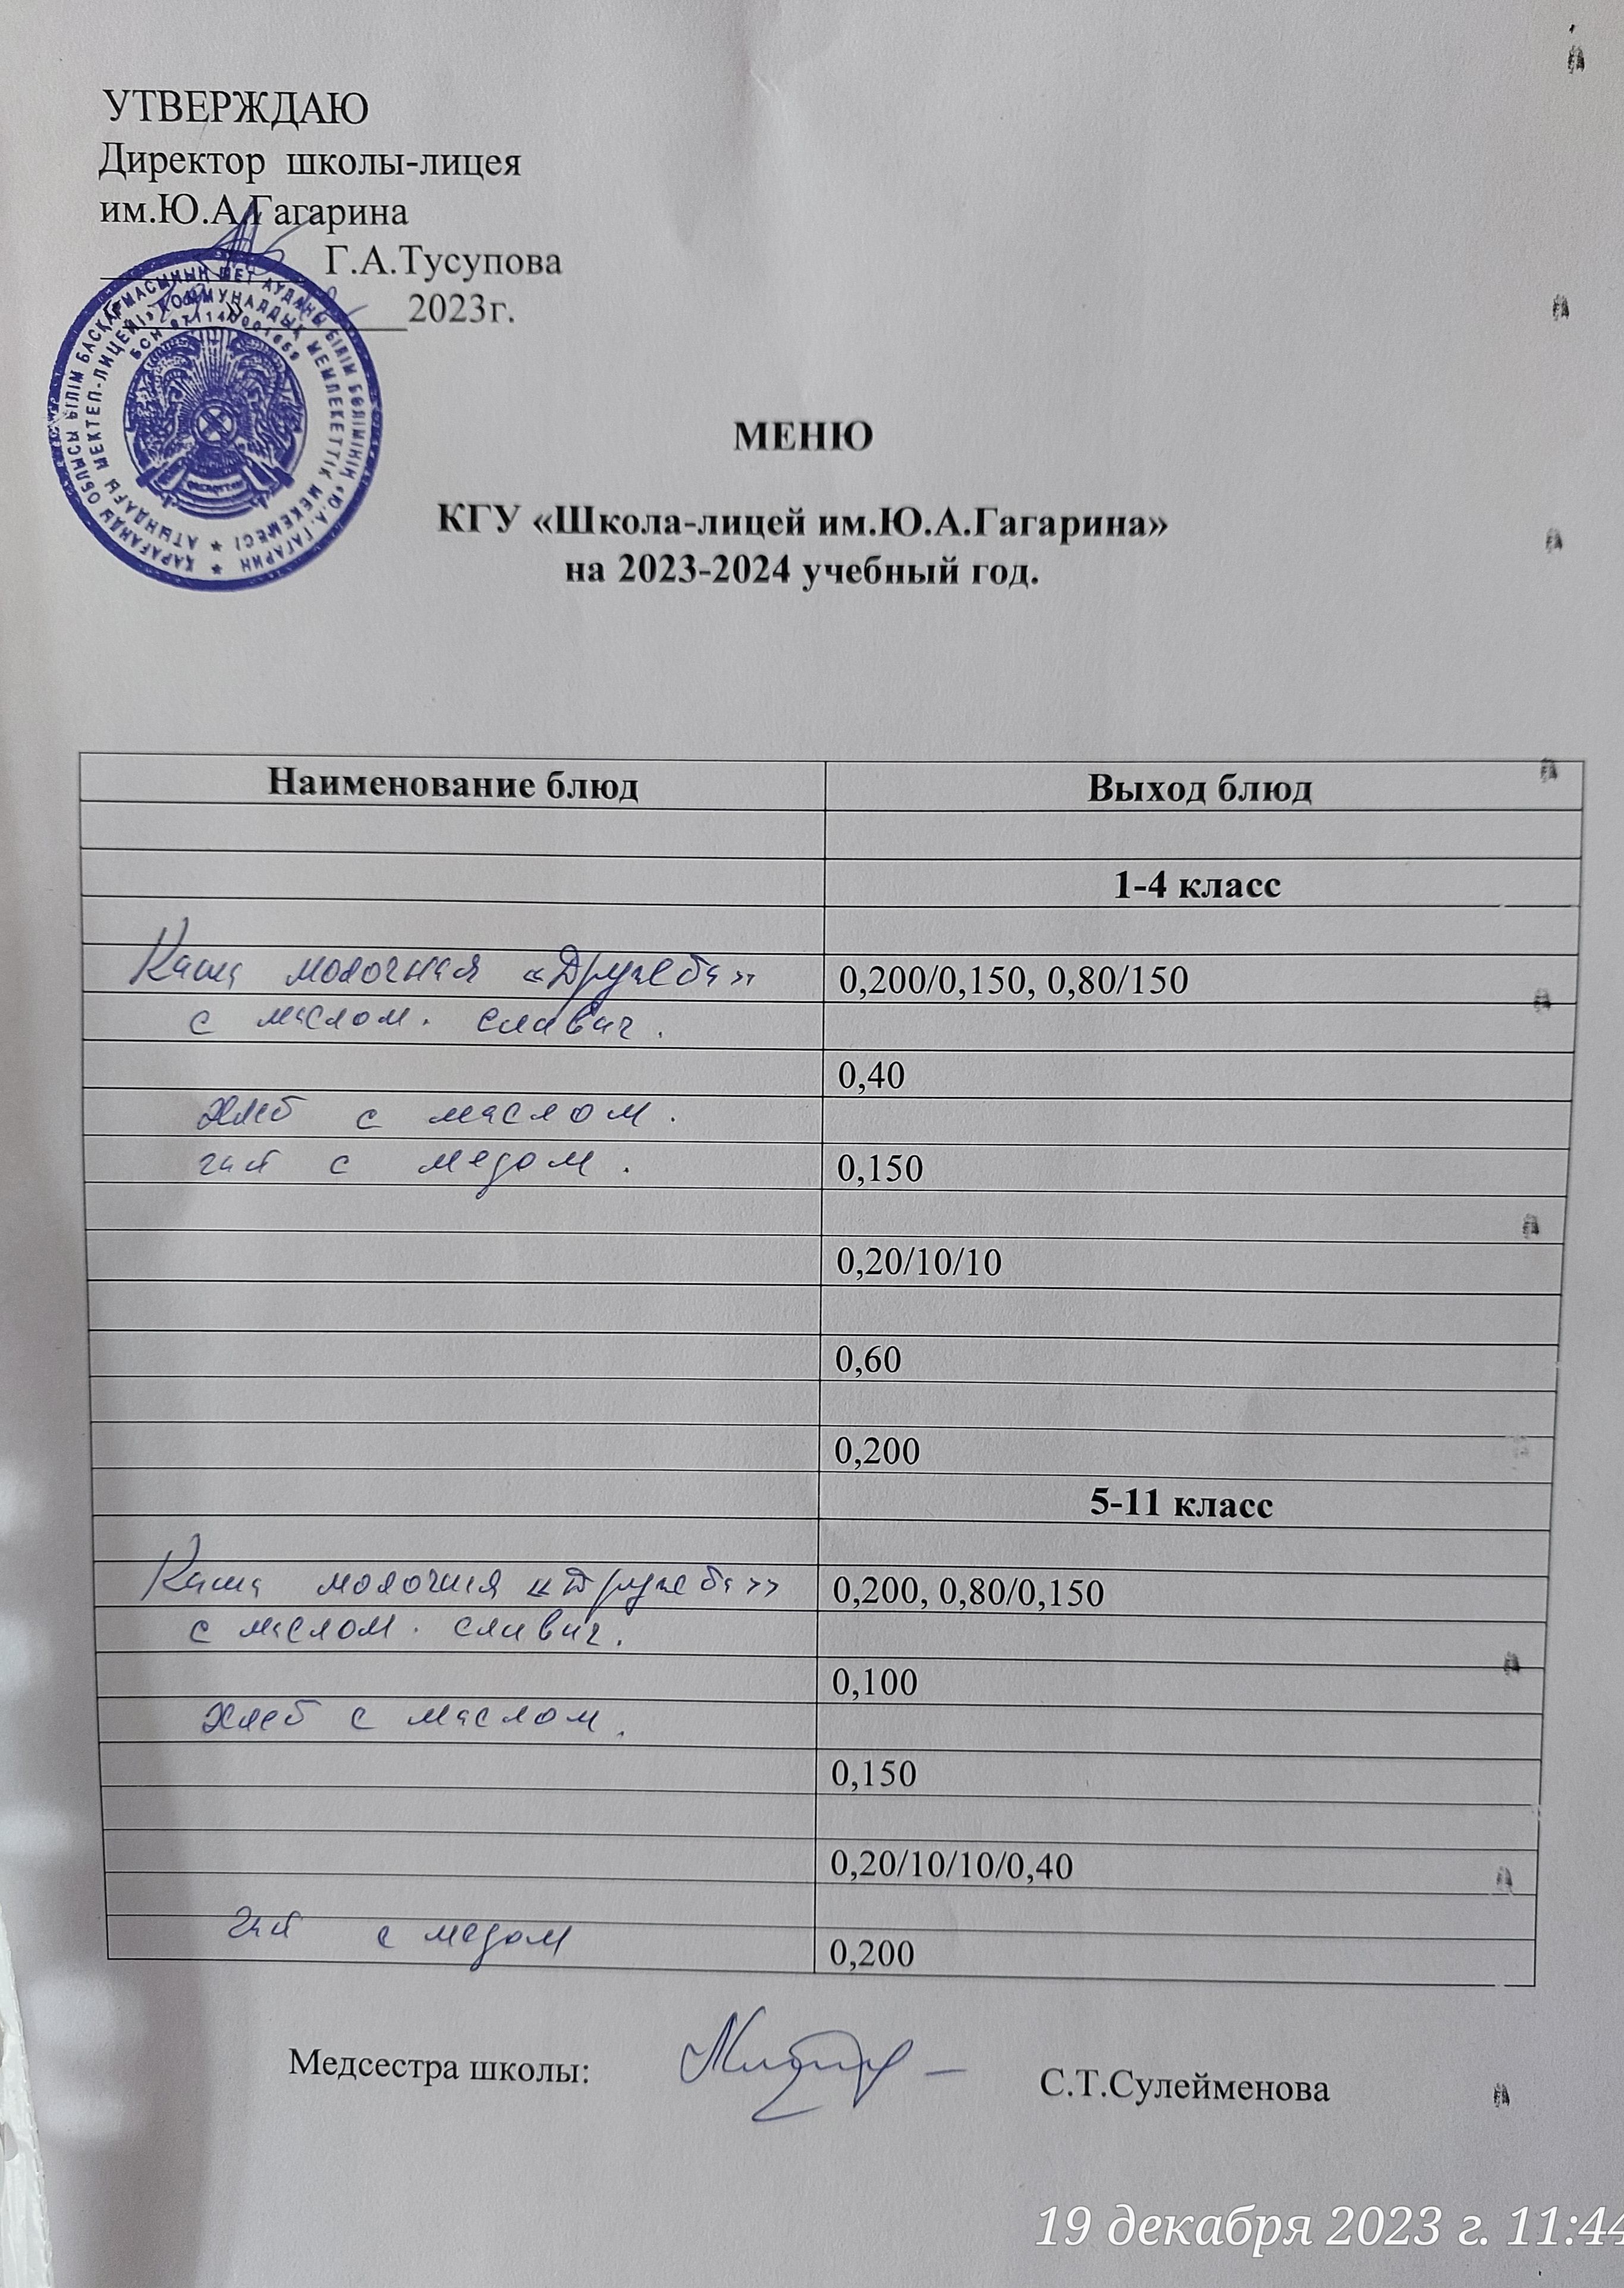 УТВЕРЖДАЮ
Директор школы-лицея
им.Ю.А.Гагарина
Г.А.Тусупова
» 2023г.
ҚАРАҒАНДЫ ОБЛЫСЫ БІЛІМ БАСҚАРМАСЫНЫҢ ШЕТ АУДАНЫ БІЛІМ БӨЛІМІНІҢ «Ю.А.ГАГАРИН
АТЫНДАҒЫ МЕКТЕП-ЛИЦЕЙІ» КОММУНАЛДЫҚ МЕМЛЕКЕТТІК МЕКЕМЕСІ
БСН
МЕНЮ
КГУ «Школа-лицей им.Ю.А.Гагарина»
на 2023-2024 учебный год.
Наименование блюд Выход блюд
1-4 класс
Каша молочная «Дружба» 0,200/0,150, 0,80/150
с маслом. сливоч.
0,40
хлеб с маслом.
чай с медом. 0,150
0,20/10/10
0,60
0,200
5-11 класс
Каша молочная «Дружба» 0,200, 0,80/0,150
с маслом. сливоч.
0,100
хлеб с маслом.
0,150
0,20/10/10/0,40
чай с медом 0,200
Медсестра школы: С.Т.Сулейменова
19 декабря 2023 г. 11:44